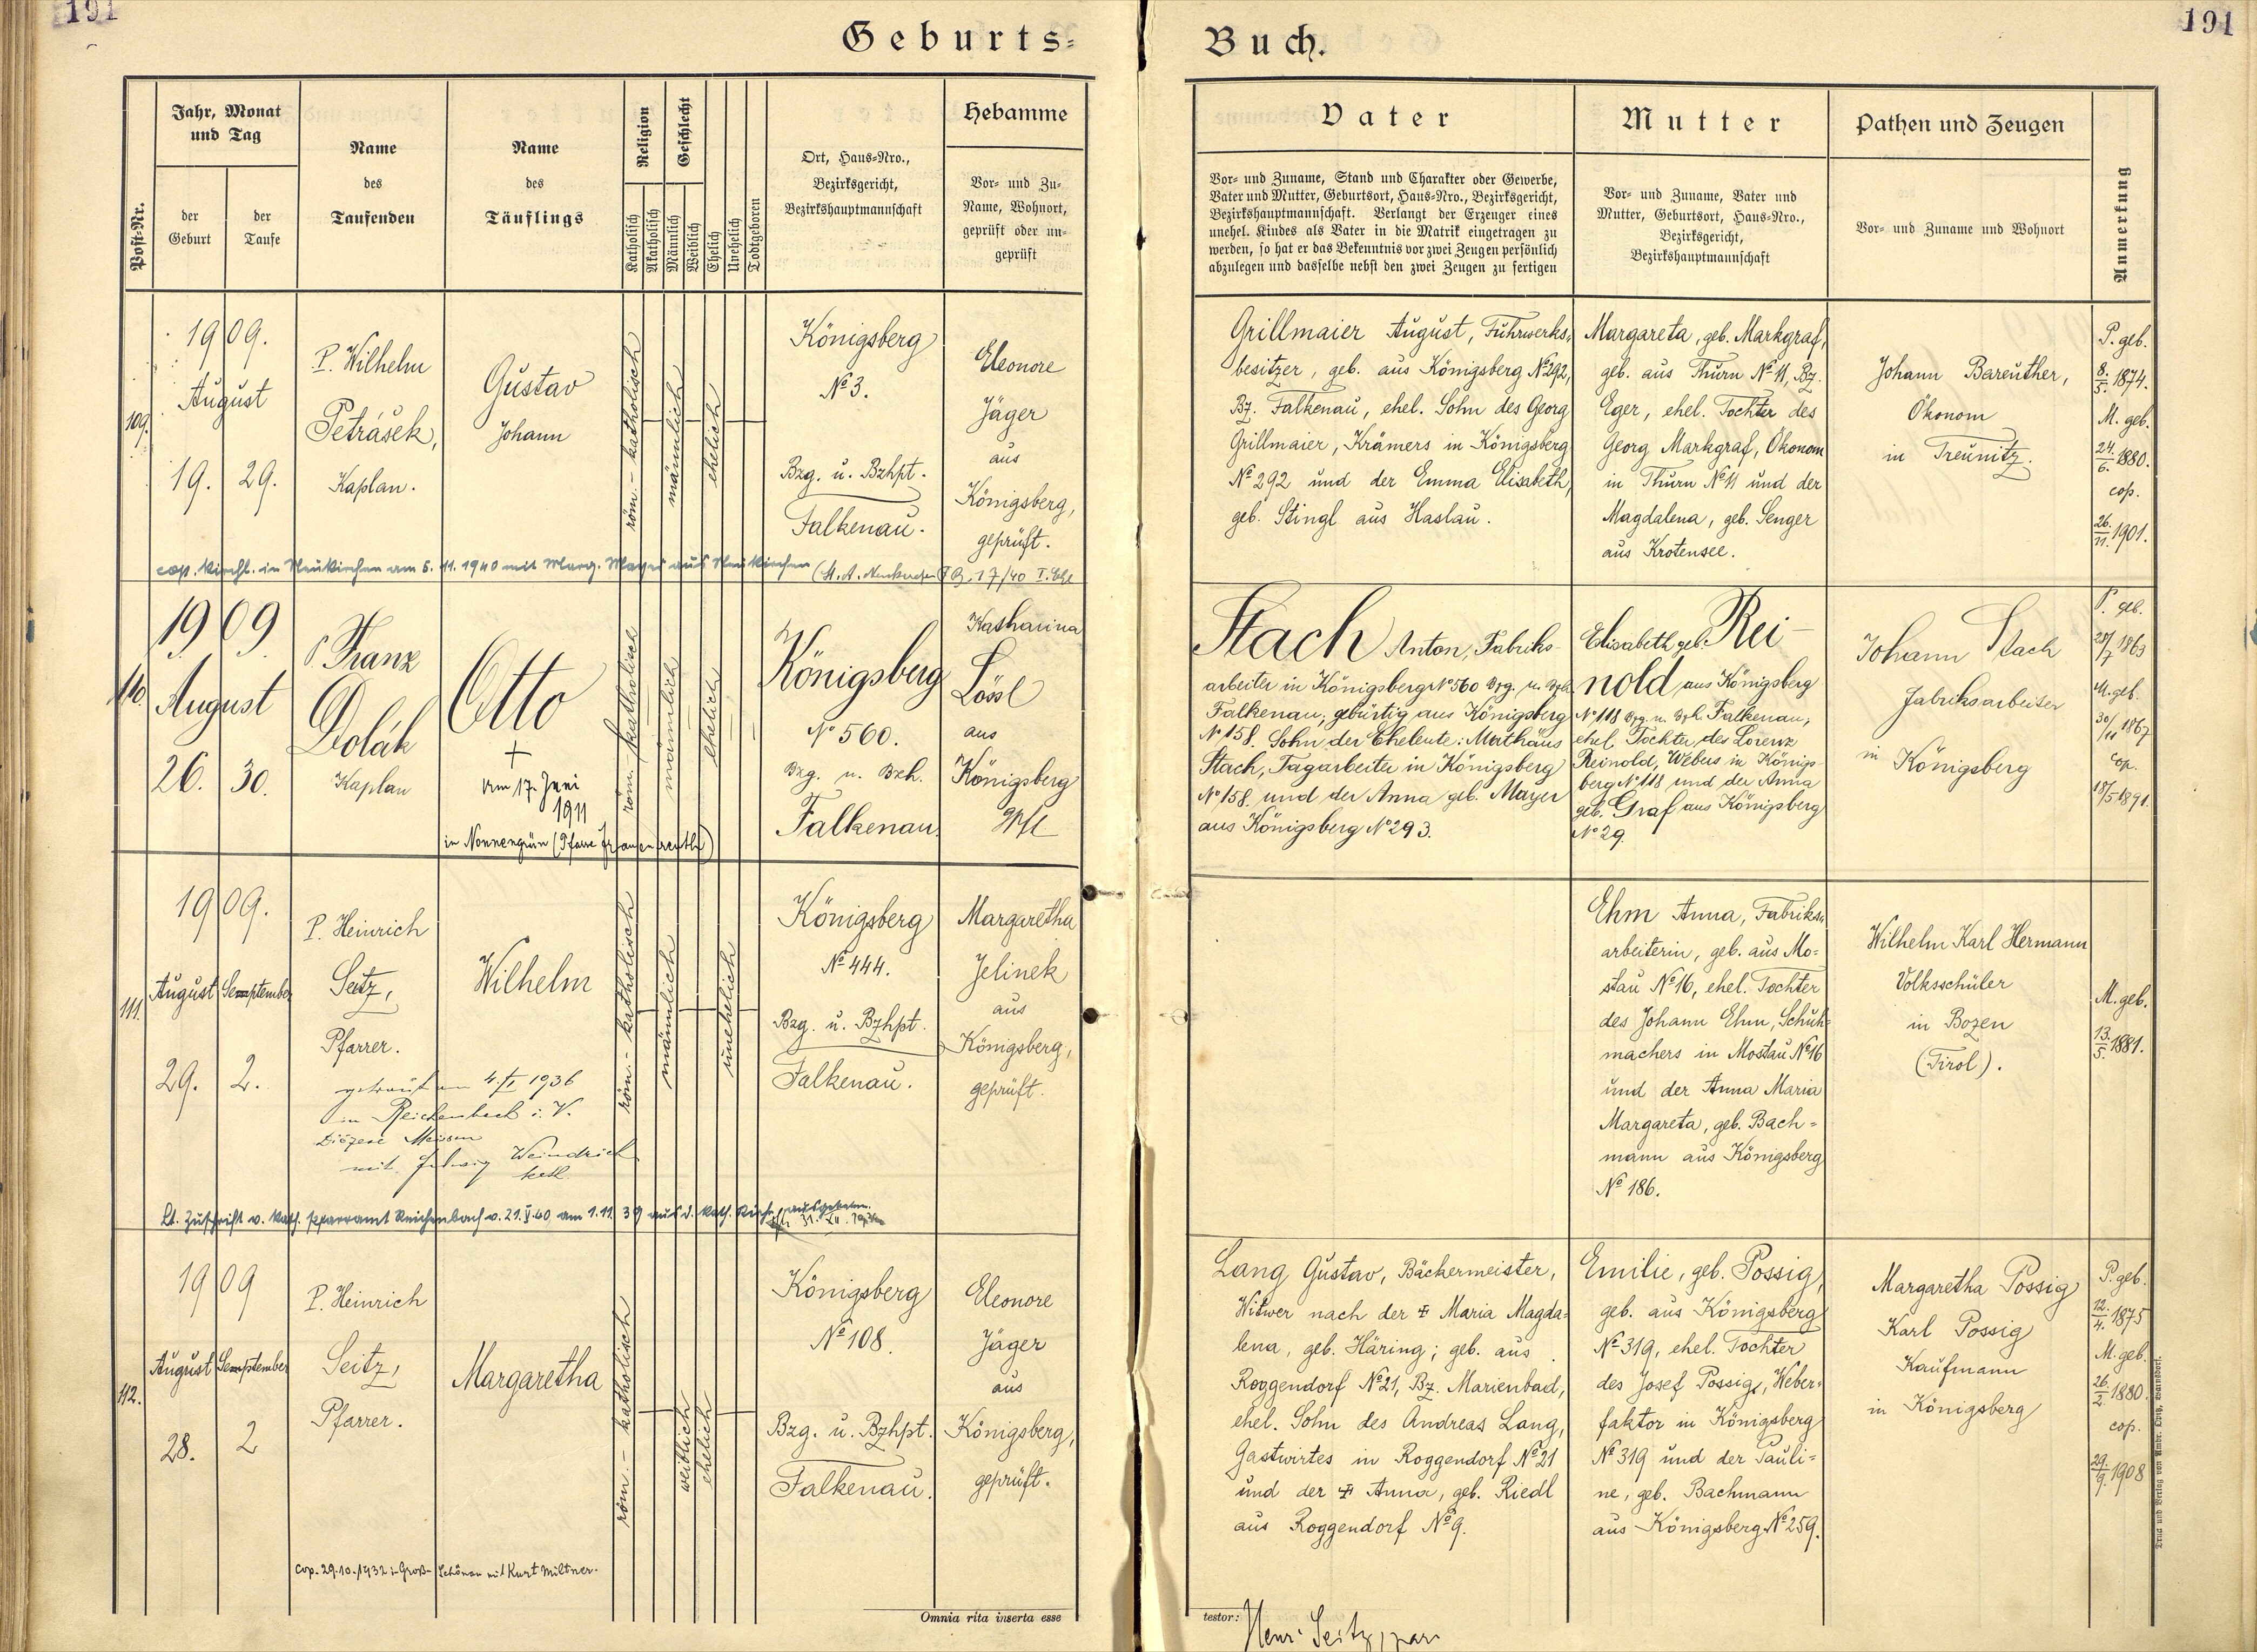 191
191
Geburts-
Buch.
Post-Nr.
Jahr, Monat
und Tag
der
Geburt
der
Taufe
Name
des
Taufenden
Name
des
Täuflings
Religion
Katholisch
Akatholisch
Geschlecht
Männlich
Weiblich
Ehelich
Unehelich
Todtgeboren
Ort, Haus-Nro.,
Bezirksgericht,
Bezirkshauptmannschaft
Hebamme
Vor- und Zu-
Name, Wohnort,
geprüft oder un-
geprüft
Vater
Vor- und Zuname, Stand und Charakter oder Gewerbe,
Vater und Mutter, Geburtsort, Haus-Nro., Bezirksgericht,
Bezirkshauptmannschaft. Verlangt der Erzeuger eines
unehel. Kindes als Vater in die Matrik eingetragen zu
werden, so hat er das Bekenntnis vor zwei Zeugen persönlich
abzulegen und dasselbe nebst den zwei Zeugen zu fertigen
Mutter
Vor- und Zuname, Vater und
Mutter, Geburtsort, Haus-Nro.,
Bezirksgericht,
Bezirkshauptmannschaft
Pathen und Zeugen
Vor- und Zuname und Wohnort
Anmerkung
109.
1909.
August
19. 29.
P. Wilhelm
Petrášek,
Kaplan.
Gustav
Johann
röm.-katholisch
männlich
ehelich
Königsberg
№ 3.
Bzg. u. Bzhpt.
Falkenau.
Eleonore
Jäger
aus
Königsberg,
geprüft.
Grillmaier August, Fuhrwerks-
besitzer, geb. aus Königsberg №292,
Bz. Falkenau, ehel. Sohn des Georg
Grillmaier, Krämers in Königsberg
№ 292 und der Emma Elisabeth,
geb. Stingl aus Haslau.
Margareta, geb. Markgraf,
geb. aus Thurn № 11, Bz.
Eger, ehel. Tochter des
Georg Markgraf, Ökonom
in Thurn №11 und der
Magdalena, geb. Senger
aus Krotensee.
Johann Bareuther,
Ökonom
in Treunitz.
P. geb.
8./5. 1874.
M. geb.
24./6. 1880.
cop.
26./11. 1901.
cop. kirchl. in Neukirchen am 5.11.1940 mit Marg. Mayer aus Neukirchen
110.
1909
August
26. 30.
P. Franz
Dolák
Kaplan
Otto
+
am 17. Juni
1911
in Nonnengrün (Pfarre Frauenreuth)
röm.-katholisch
männlich
ehelich
Königsberg
№ 560.
Bzg. u. Bzh.
Falkenau.
Katharina
Lössl
aus
Königsberg
Stach Anton, Fabriks-
arbeiter in Königsberg №560 Bzg. u. Bzh.
Falkenau, gebürtig aus Königsberg
№ 158. Sohn der Eheleute: Mathäus
Stach, Tagarbeiter in Königsberg
№ 158. und der Anna geb. Mayer
aus Königsberg № 293.
Elisabeth geb. Rei-
nold aus Königsberg
№ 118 Bzg. u. Bzh. Falkenau,
ehel. Tochter des Lorenz
Reinold, Webers in Königs-
berg № 118 und der Anna
geb. Graf aus Königsberg
№ 29.
Johann Stach
Fabriksarbeiter
in Königsberg
P. geb.
28/7 1863
M. geb.
30/11 1867
cop.
18/5 1891.
111.
1909.
August September
29. 2.
P. Heinrich
Seitz,
Pfarrer.
Wilhelm
getraut am 4./I 1936
in Reichenbach i. V.
Diözese Meissen
mit Weindrich
kath.
röm.-katholisch
männlich
unehelich
Königsberg
№ 444.
Bzg. u. Bzhpt.
Falkenau.
Margaretha
Jelinek
aus
Königsberg,
geprüft.
Ehm Anna, Fabriks-
arbeiterin, geb. aus Mo-
stau №16, ehel. Tochter
des Johann Ehm, Schuh-
machers in Mostau №16
und der Anna Maria
Margareta, geb. Bach-
mann aus Königsberg
№ 186.
Wilhelm Karl Hermann
Volksschüler
in Bozen
(Tirol).
M. geb.
13./5. 1881.
Lt. Zuschrift v. kath. Pfarramt Reichenbach v. 21.V.40 am 1.11.39 aus d. kath. Kirche ausgetreten.
112.
1909
August September
28. 2
P. Heinrich
Seitz,
Pfarrer.
Margaretha
röm.-katholisch
weiblich
ehelich
Königsberg
№ 108.
Bzg. u. Bzhpt.
Falkenau.
Eleonore
Jäger
aus
Königsberg,
geprüft.
Lang Gustav, Bäckermeister,
Witwer nach der ‡ Maria Magda-
lena, geb. Häring; geb. aus
Roggendorf №21, Bz. Marienbad,
ehel. Sohn des Andreas Lang,
Gastwirtes in Roggendorf №21
und der ‡ Anna, geb. Riedl
aus Roggendorf № 9.
Emilie, geb. Possig,
geb. aus Königsberg
№ 319, ehel. Tochter
des Josef Possig, Weber-
faktor in Königsberg
№ 319 und der Pauli-
ne, geb. Bachmann
aus Königsberg № 259.
Margaretha Possig
Karl Possig
Kaufmann
in Königsberg
P. geb.
12./4. 1875
M. geb.
26./2. 1880.
cop.
29./9. 1908
cop. 29.10.1932 i. Groß-Schönau mit Kurt Miltner.
Omnia rita inserta esse
testor:
Henr. Seitz, par.
Druck und Verlag von Ambr. Opitz, Warnsdorf.